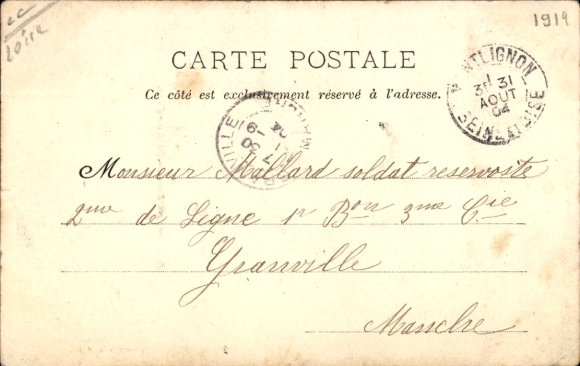 Loire
1919
CARTE POSTALE
Ce côté est exclusivement réservé à l'adresse.
MONTLIGNON
3E 31
AOUT
04
SEINE-ET-OISE
Monsieur Mallard soldat reservoste
2me de Ligne 1r Bon 3me Cie
Granville
Manche